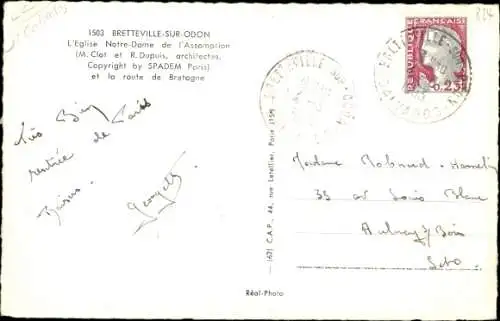 824
1503 BRETTEVILLE-SUR-ODON
L'Eglise Notre-Dame de l'Assomption
(M. Clot et R. Dupuis, architectes,
Copyright by SPADEM Paris)
et la route de Bretagne
Très Bien
rentrée de Paris
Baisers.
Georgette
(62) C.A.P., 44, rue Letellier, Paris (15e)
Réal-Photo
REPUBLIQUE FRANÇAISE
0,25
BRETTEVILLE-SUR-ODON
CALVADOS
BRETTEVILLE-SUR-ODON
Madame
35 av Louis Blanc
Aulnay s/ Bois
S et O